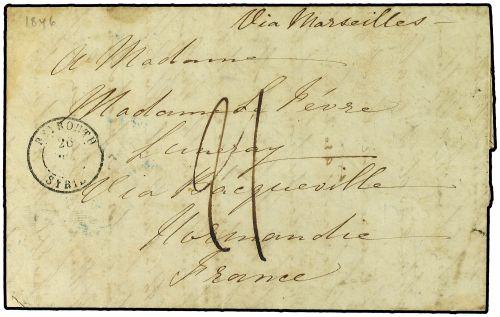 1846
Via Marseilles
A Madame
Madame Le Fèvre
Luneray
Via Bacqueville
Normandie
France
21
BEYROUTH
26
SYRIE